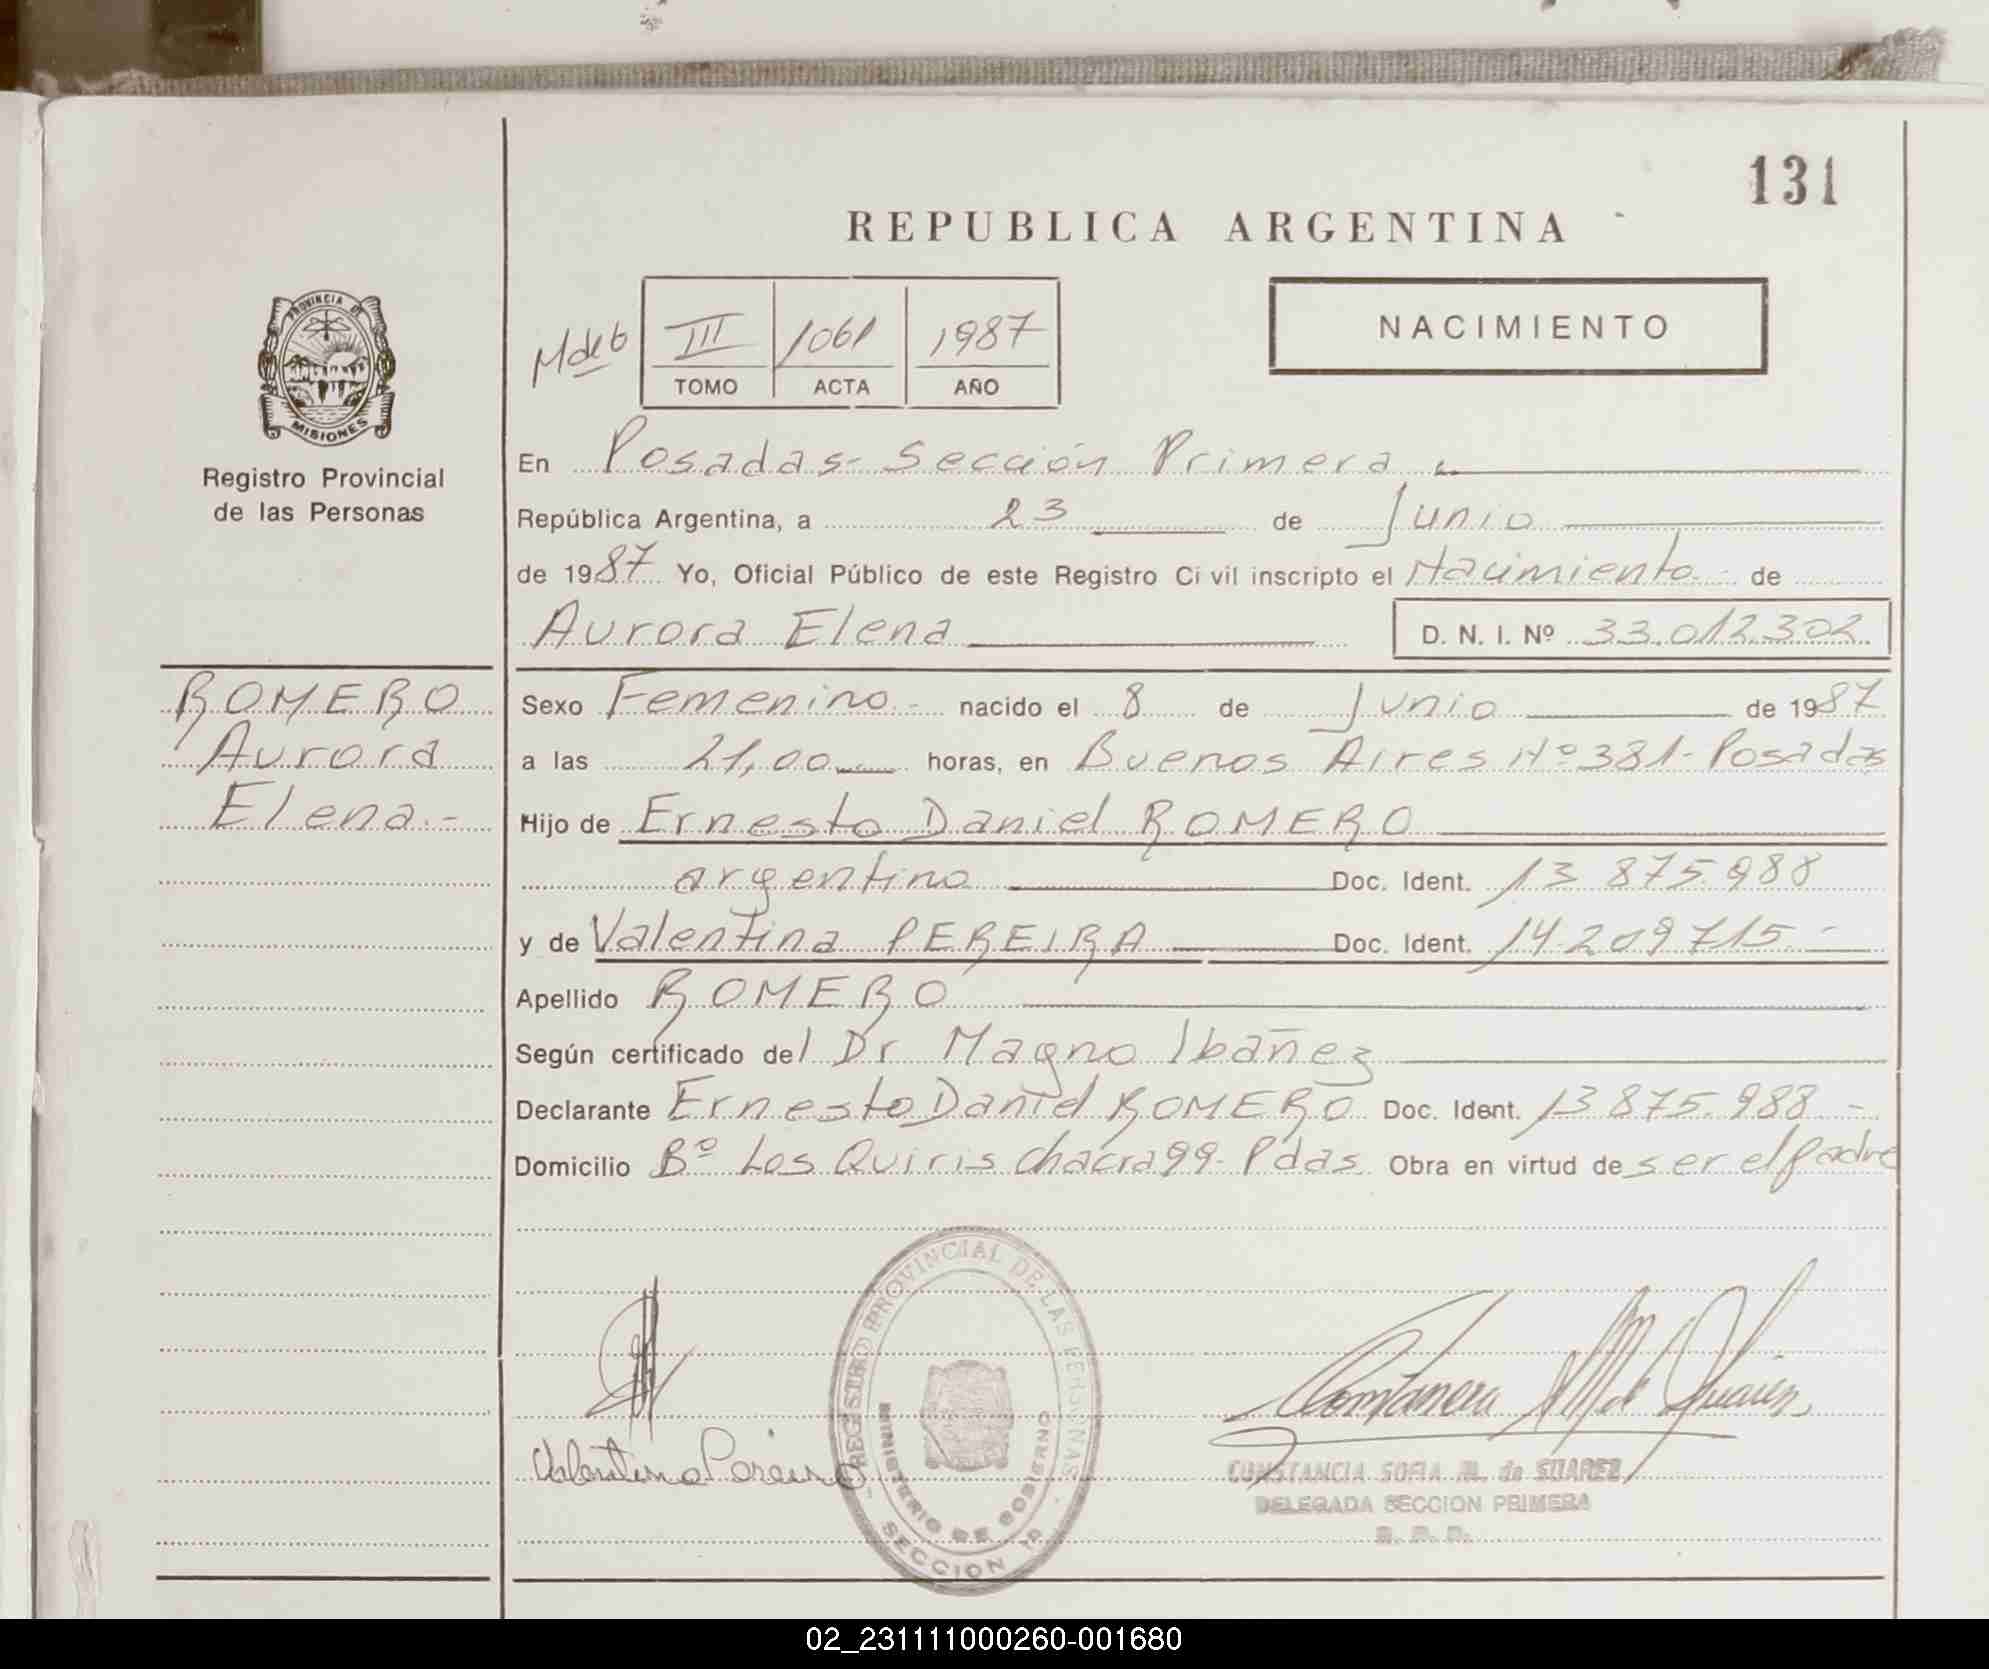 131
REPUBLICA ARGENTINA
NACIMIENTO
PROVINCIA DE
MISIONES
Registro Provincial
de las Personas
III 1061 1987
TOMO ACTA AÑO
En Posadas - Sección Primera
República Argentina, a 23 de Junio
de 1987 Yo, Oficial Público de este Registro Civil inscripto el Nacimiento de
Aurora Elena D. N. I. Nº 33.012.302
ROMERO
Aurora
Elena.-
Sexo Femenino - nacido el 8 de Junio de 1987
a las 21,00 horas, en Buenos Aires Nº 381 - Posadas
Hijo de Ernesto Daniel ROMERO
argentino Doc. Ident. 13.875.988
y de Valentina PEREIRA Doc. Ident. 14.209.715 -
Apellido ROMERO
Según certificado del Dr Magno Ibañez
Declarante Ernesto Daniel ROMERO Doc. Ident. 13.875.988 -
Domicilio Bº Los Quiris chacra 99 - Pdas Obra en virtud de ser el padre
Valentina Pereira
REGISTRO PROVINCIAL DE LAS PERSONAS
MINISTERIO DE GOBIERNO
SECCION 1ª
CONSTANCIA SOFIA M. de SUAREZ
DELEGADA SECCION PRIMERA
02_231111000260-001680